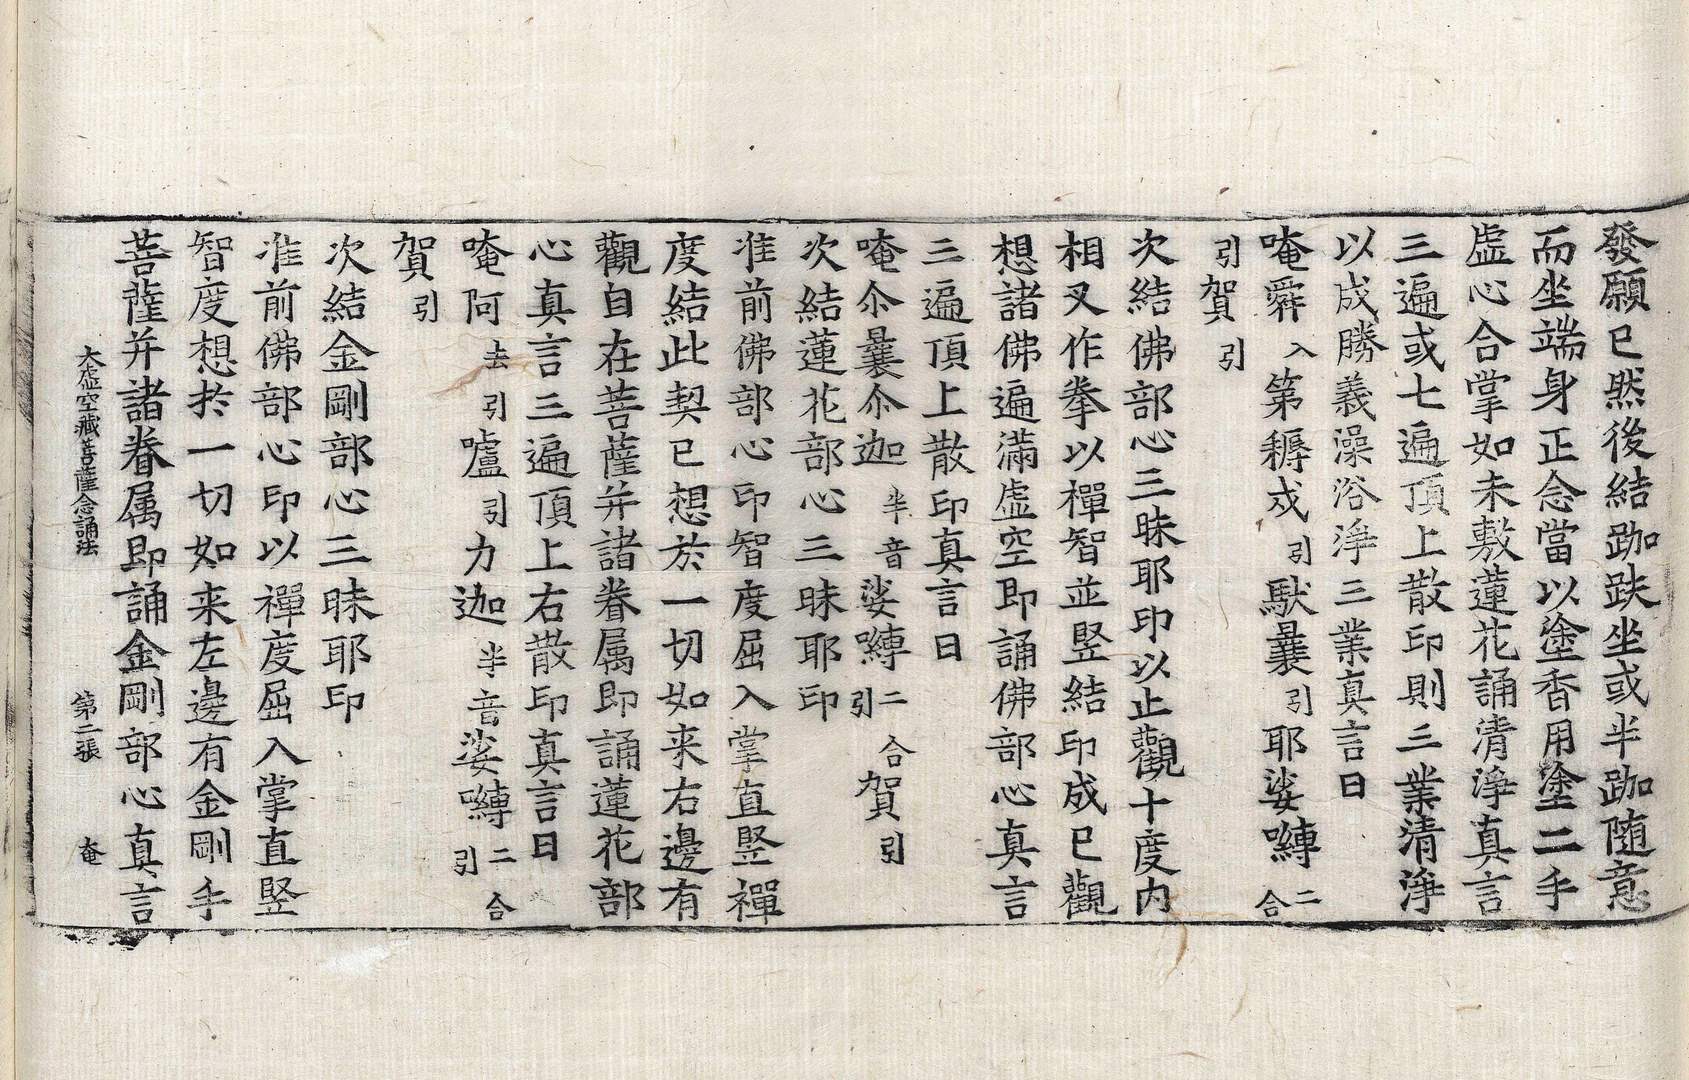 發願已然後結跏趺坐或半跏随意
而坐端身正念當以塗香用塗二手
虛心合掌如未敷蓮花誦清淨真言
三遍或七遍頂上散印則三業清淨
以成勝義澡浴淨三業真言曰
唵舜入第耨戍引馱曩引耶娑嚩二合
引賀引
次結佛部心三昧耶印以止觀十度内
相叉作拳以禪智並竪結印成已觀
想諸佛遍滿虛空即誦佛部心真言
三遍頂上散印真言曰
唵尒曩尒迦半音娑嚩二合引賀引
次結蓮花部心三昧耶印
准前佛部心印智度屈入掌直竪禪
度結此契已想於一切如来右邊有
觀自在菩薩并諸眷属即誦蓮花部
心真言三遍頂上右散印真言曰
唵阿去引嚧引力迦半音娑嚩二合引
賀引
次結金剛部心三昧耶印
准前佛部心印以禪度屈入掌直竪
智度想扵一切如来左邊有金剛手
菩薩并諸眷属即誦金剛部心真言
大虛空藏菩薩念誦法 第二張 奄